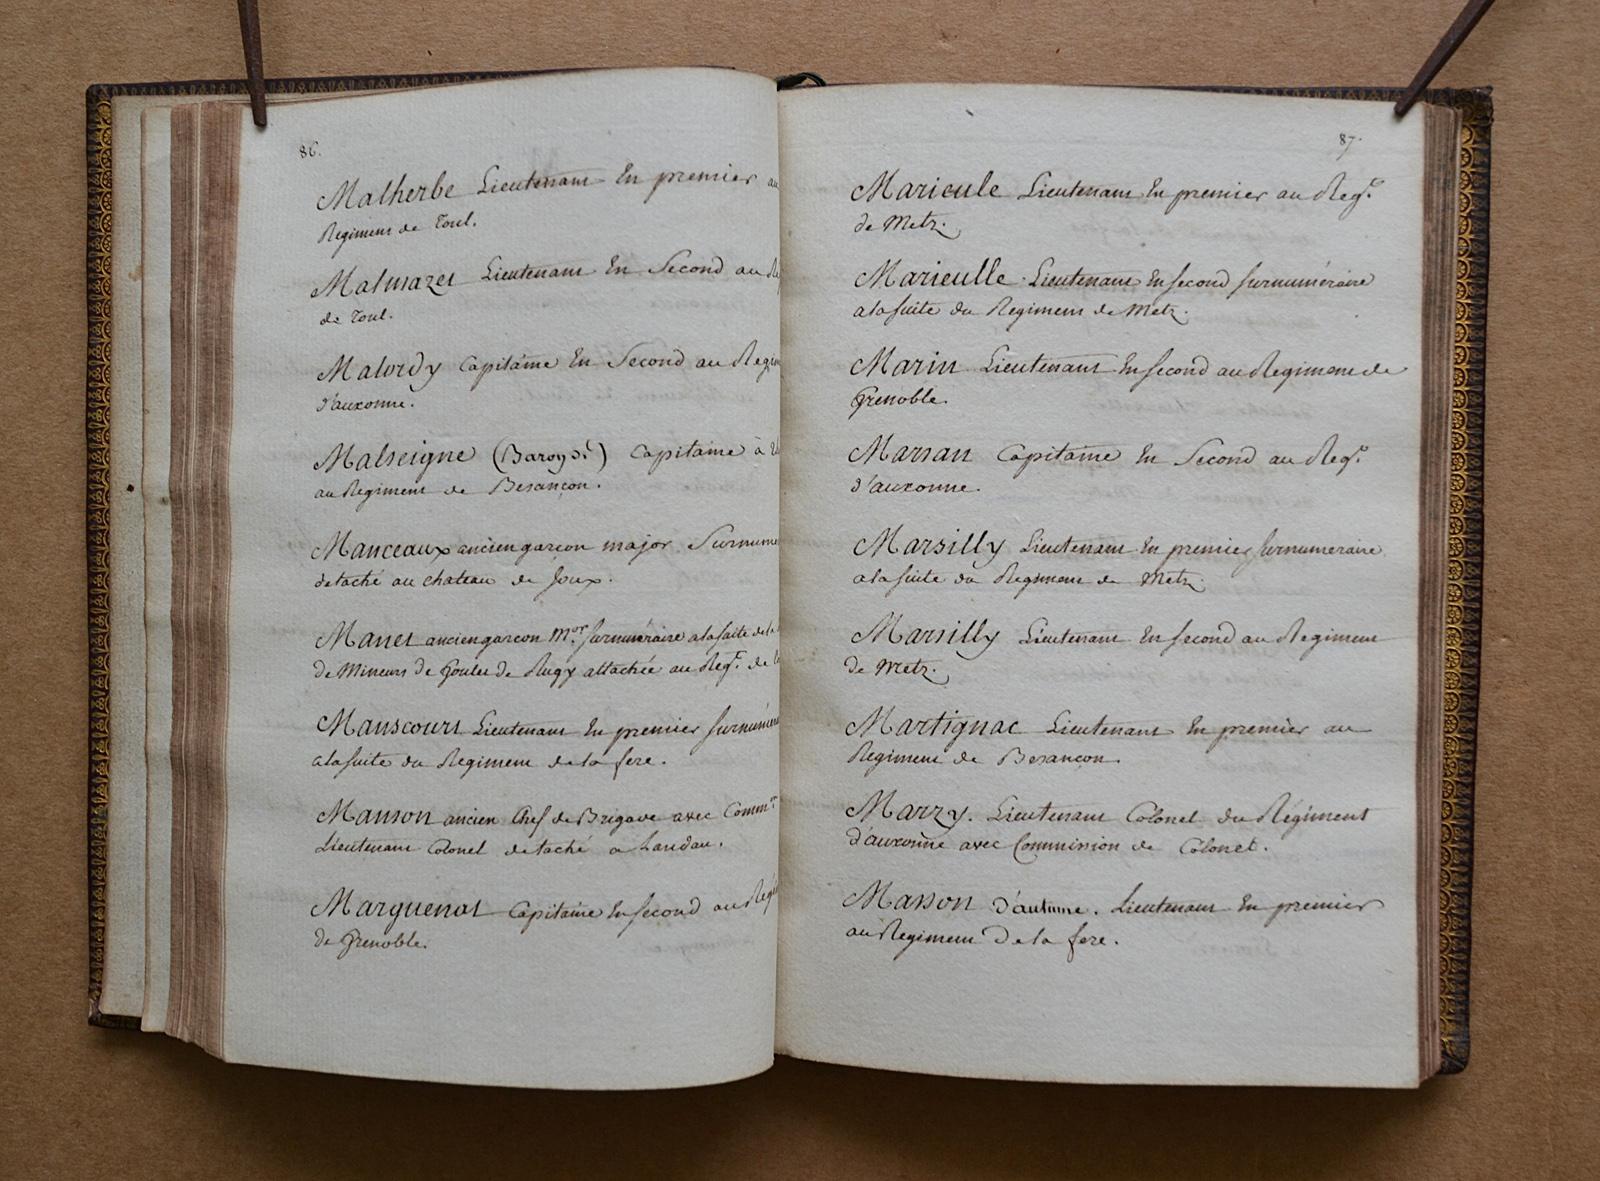 86.
Malherbe Lieutenant En premier au
Regiment de Toul.
Malmazet Lieutenant En Second au
de Toul.
Malordy Capitaine En Second au
d'auxonne.
Malseigne Capitaine à
au Regiment de Besancon.
Manceaux ancien garcon major
detaché au chateau de Joux.
Manet ancien garcon m.or surnuméraire ala suite de la
de Mineurs de Goulet de Rugy attachée au Reg.t de
Manscourt Lieutenant En premier
ala suite du Regiment de la fere.
Manson ancien Chef de Brigade avec Comm.on
Lieutenant Colonel detaché a Landau.
Marguenat Capitaine En second au
de Grenoble.
87.
Marieule Lieutenant En premier au Reg.t
de Metz.
Marieulle Lieutenant En second surnuméraire
ala suite du Regiment de Metz.
Marin Lieutenant En second au Regiment de
Grenoble.
Marsan Capitaine En Second au Reg.t
d'auxonne.
Marsilly Lieutenant En premier surnumeraire
ala suite du Regiment de Metz.
Marsilly Lieutenant En second au Regiment
de Metz.
Martignac Lieutenant En premier au
Regiment de Besançon.
Marzy. Lieutenant Colonel du Régiment
d'auxonne avec Commission de Colonel.
Masson d'autume. Lieutenant En premier
au Regiment De la fere.